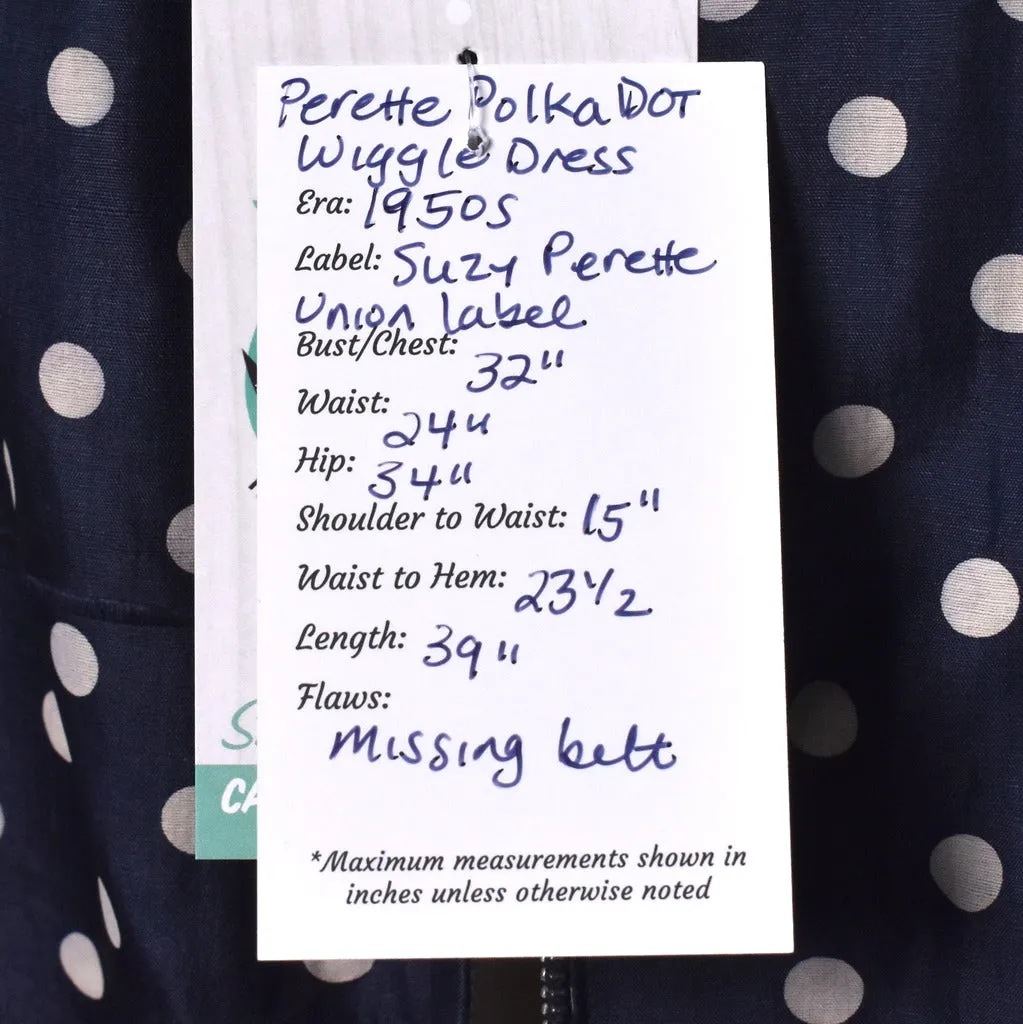 Perette Polka DOT
Wiggle Dress
Era: 1950s
Label: Suzy Perette
Union label
Bust/Chest: 32"
Waist: 24"
Hip: 34"
Shoulder to Waist: 15"
Waist to Hem: 23 1/2
Length: 39"
Flaws:
Missing belt
*Maximum measurements shown in
inches unless otherwise noted